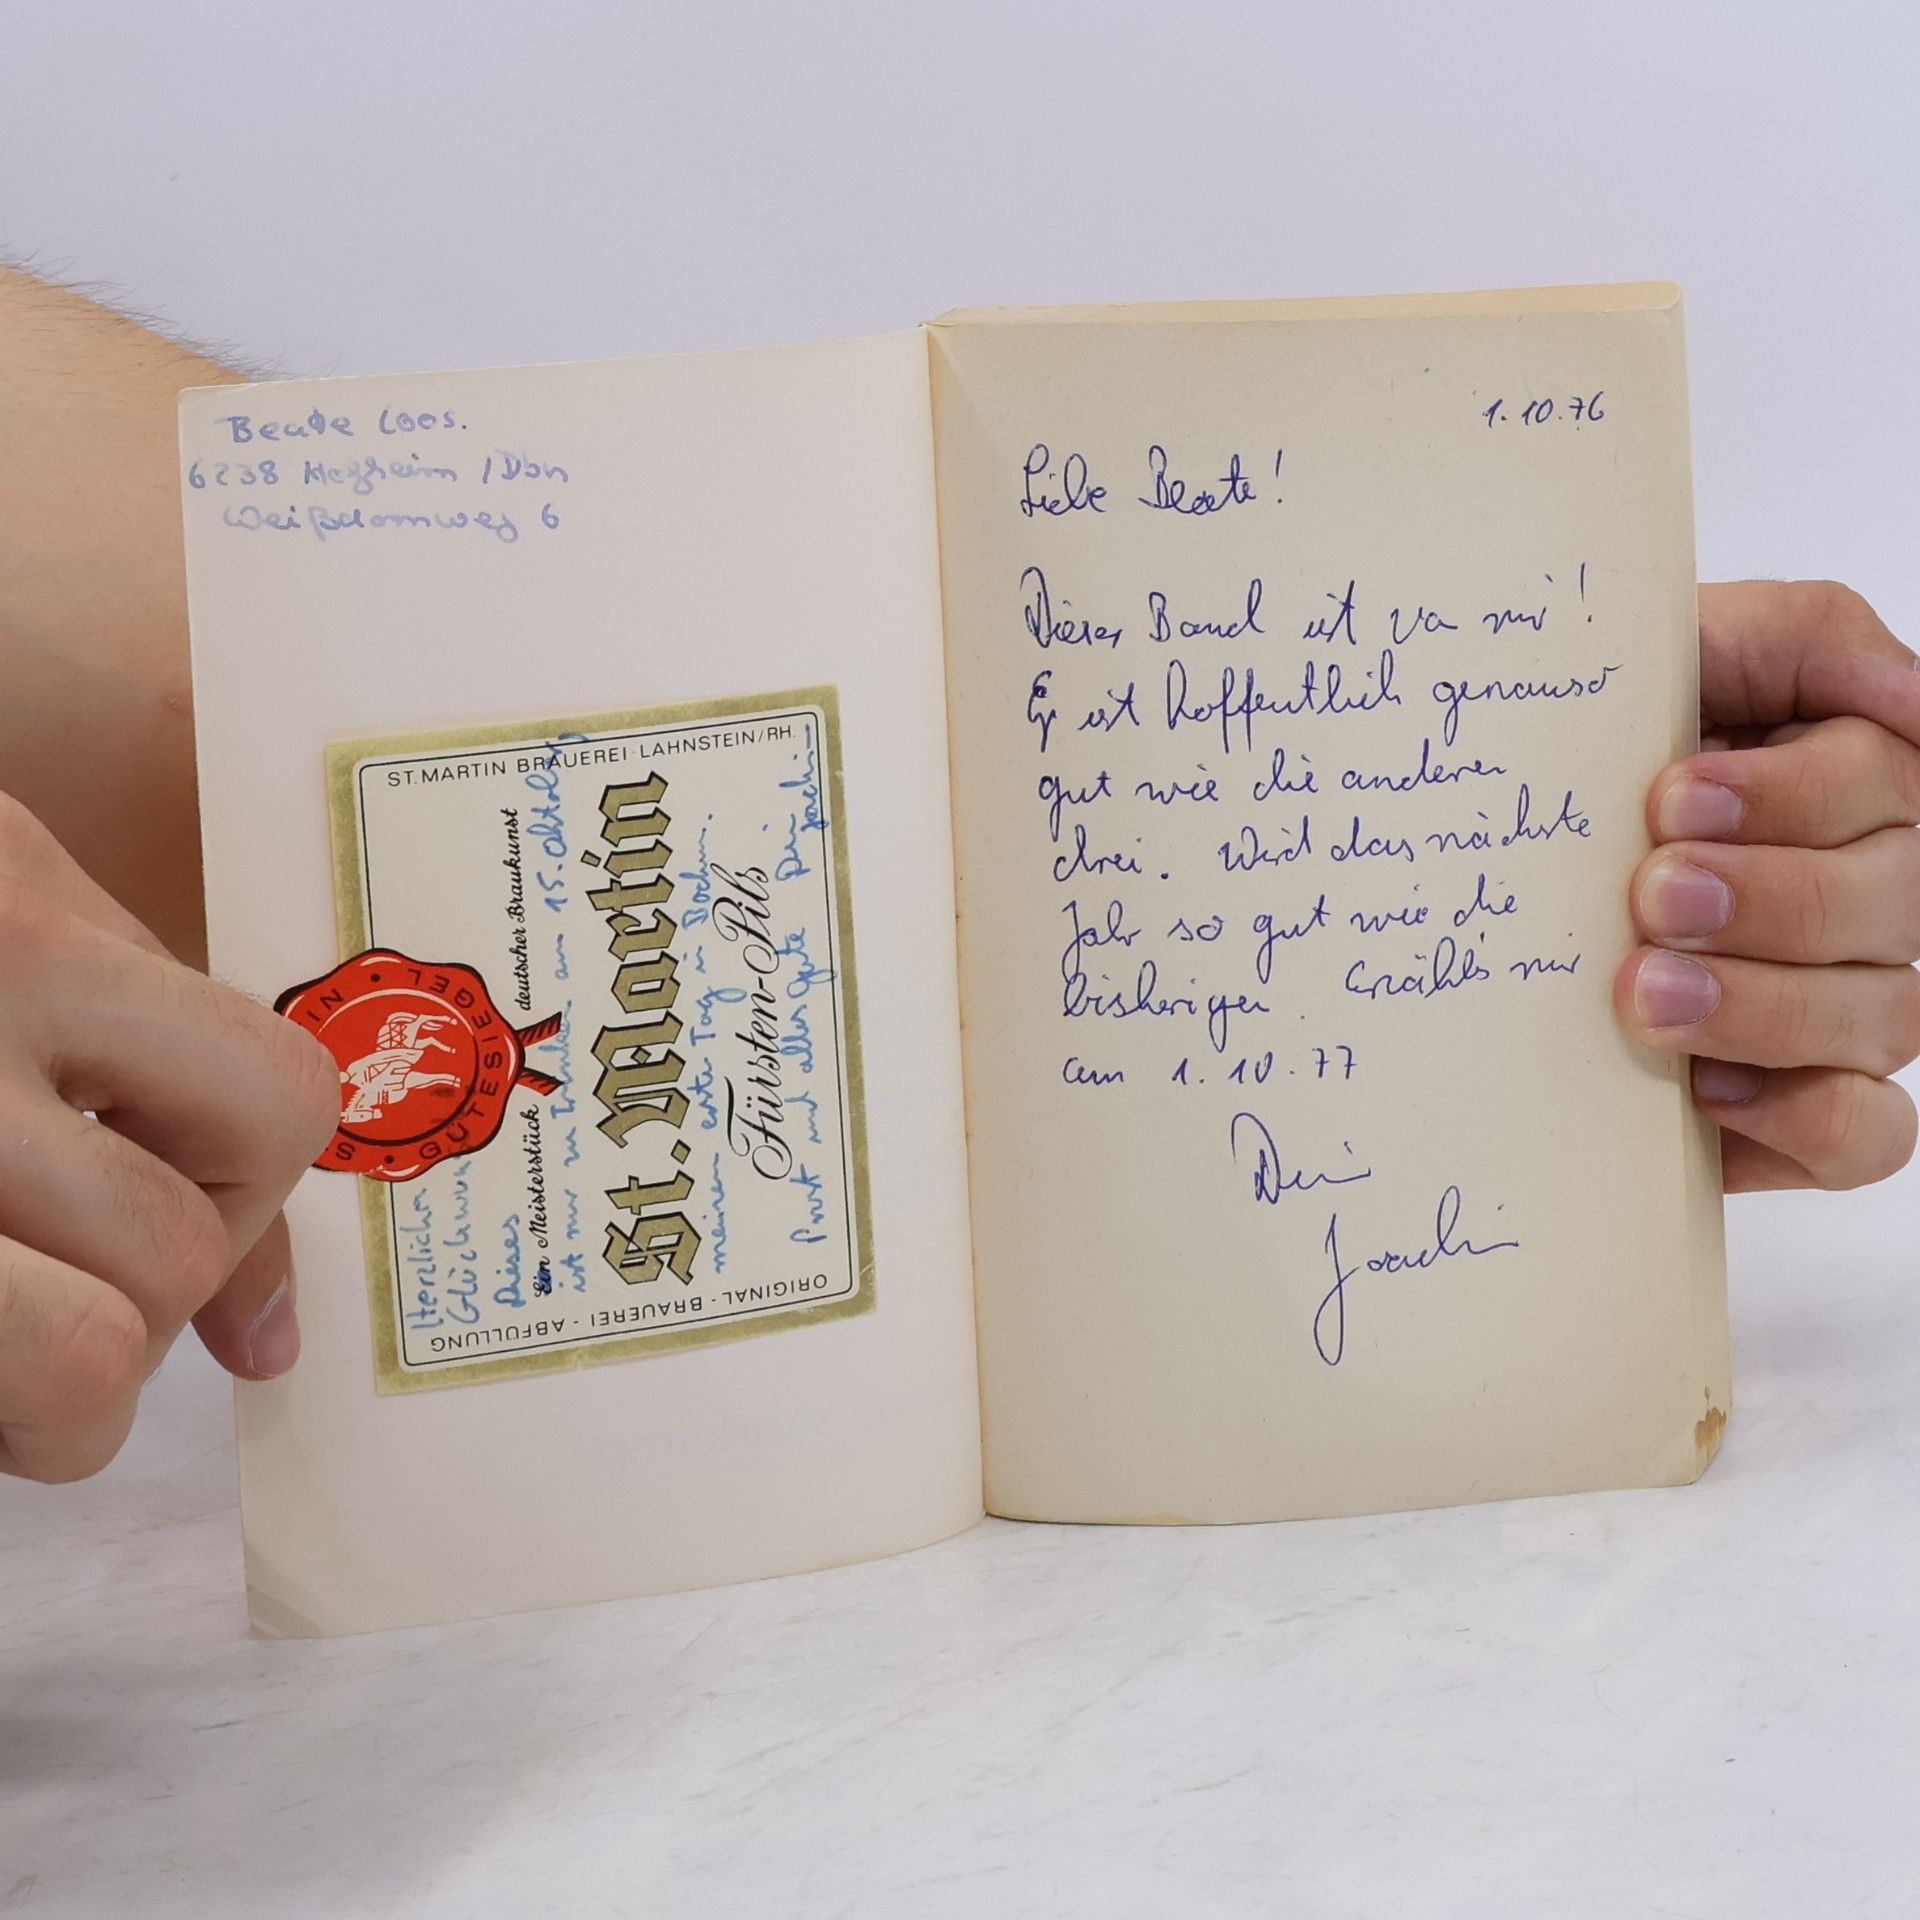 Beate Loos.
6238 Hofheim / Dbn
Weißdornweg 6
ST. MARTIN BRAUEREI · LAHNSTEIN/RH.
GÜTESIEGEL
Ein Meisterstück deutscher Braukunst
St. Martin
Fürsten-Pils
ORIGINAL - BRAUEREI - ABFÜLLUNG
Herzlichen
Glückwun
Dieses
ist nur zu Trinken am 15. Oktober
meinen erste Tag in Bochum.
Prost und alles Gute Dein
Joachim
1.10.76
Liebe Beate!
Dieser Band ist von mir!
Er ist hoffentlich genauso
gut wie die anderen
drei. Wird das nächste
Jahr so gut wie die
bisherigen. Erzähl's mir
am 1.10.77
Dein
Joachim